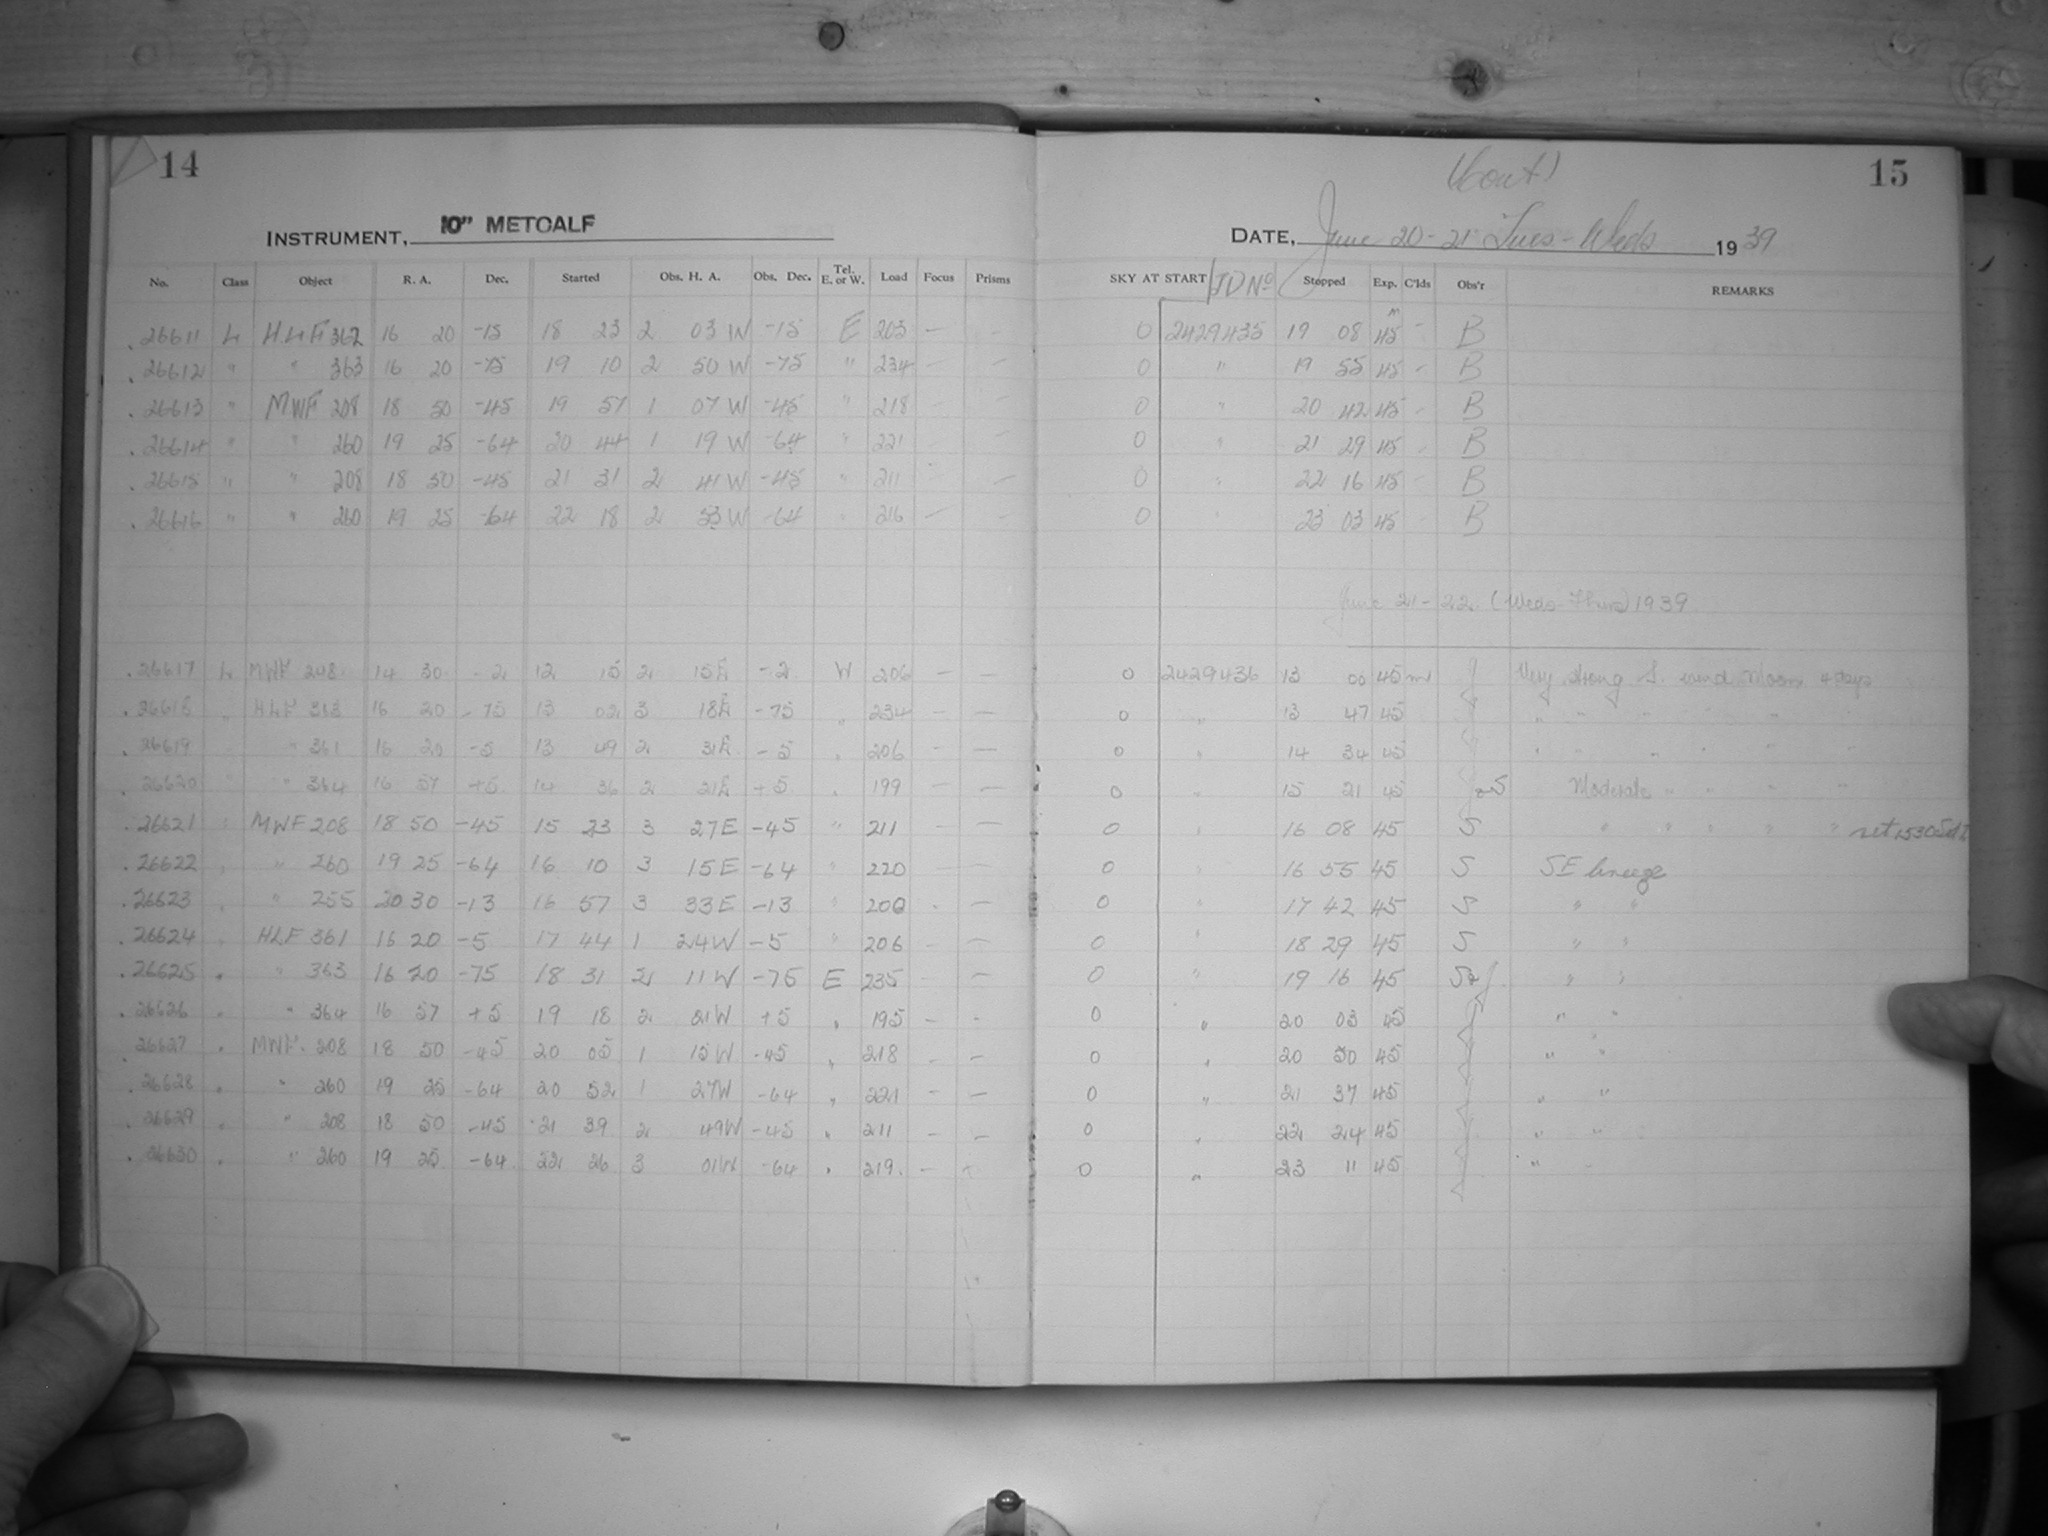 14
INSTRUMENT, 10" METCALF
No. Class Object R. A. Dec. Started Obs. H. A. Obs. Dec. Tel. E. or W. Load Focus Prisms
26611 L HLF 362 16 20 -15 18 23 2 03 W -15 E 203 — —
26612 " " 363 16 20 -75 19 10 2 50 W -75 " 234 — —
26613 " MWF 208 18 50 -45 19 57 1 07 W -45 " 218 — —
26614 " " 260 19 25 -64 20 44 1 19 W -64 " 221 — —
26615 " " 208 18 50 -45 21 31 2 41 W -45 " 211 — —
26616 " " 260 19 25 -64 22 18 2 53 W -64 " 216 — —
26617 L MWF 248 14 30 -2 12 15 2 15 E -2 W 206 — —
26618 " HLF 363 16 20 -75 13 02 3 18 E -75 " 234 — —
26619 " 361 16 20 -5 13 49 2 31 E -5 " 206 — —
26620 " " 364 16 57 +5 14 36 2 21 E +5 " 199 — —
26621 " MWF 208 18 50 -45 15 23 3 27 E -45 " 211 — —
26622 " " 260 19 25 -64 16 10 3 15 E -64 " 220 — —
26623 " " 255 20 30 -13 16 57 3 33 E -13 " 200 - —
26624 " HLF 361 16 20 -5 17 44 1 24 W -5 " 206 — —
26625 " " 363 16 20 -75 18 31 2 11 W -75 E 235 — —
26626 " " 364 16 57 +5 19 18 2 21 W +5 " 195 — -
26627 " MWF. 208 18 50 -45 20 05 1 15 W -45 " 218 — —
26628 " " 260 19 25 -64 20 52 1 27 W -64 " 221 — —
26629 " " 208 18 50 -45 21 39 2 49 W -45 " 211 — —
26630 " " 260 19 25 -64 22 26 3 01 W -64 " 219. —
(Cont)
15
DATE, June 20-21 Tues-Weds 1939
SKY AT START JD No Stopped Exp. C'lds Obs'r REMARKS
0 2429435 19 08 45 m - B
0 " 19 55 45 - B
0 " 20 42 45 - B
0 " 21 29 45 - B
0 " 22 16 45 - B
0 23 03 45 - B
June 21-22 (Weds-Thurs) 1939
0 2429436 13 00 45 m J Very strong S. wind Moon 4 days
0 " 13 47 45 " " " " " "
0 " 14 34 45 " " " " " "
0 " 15 21 45 S Moderate " " " "
0 " 16 08 45 S " " " " " set 1530
0 " 16 55 45 S SE breeze
0 " 17 42 45 S " "
0 " 18 29 45 S " "
0 " 19 16 45 S " "
0 " 20 03 45 " "
0 " 20 50 45 " "
0 " 21 37 45 " "
0 " 22 24 45 " "
0 " 23 11 45 " "